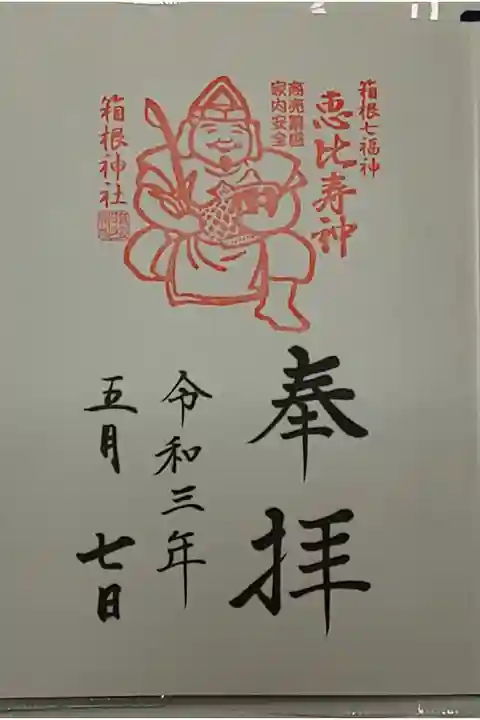 箱根七福神
恵比寿神
商売繁盛
家内安全
箱根神社
奉拝
令和三年
五月七日